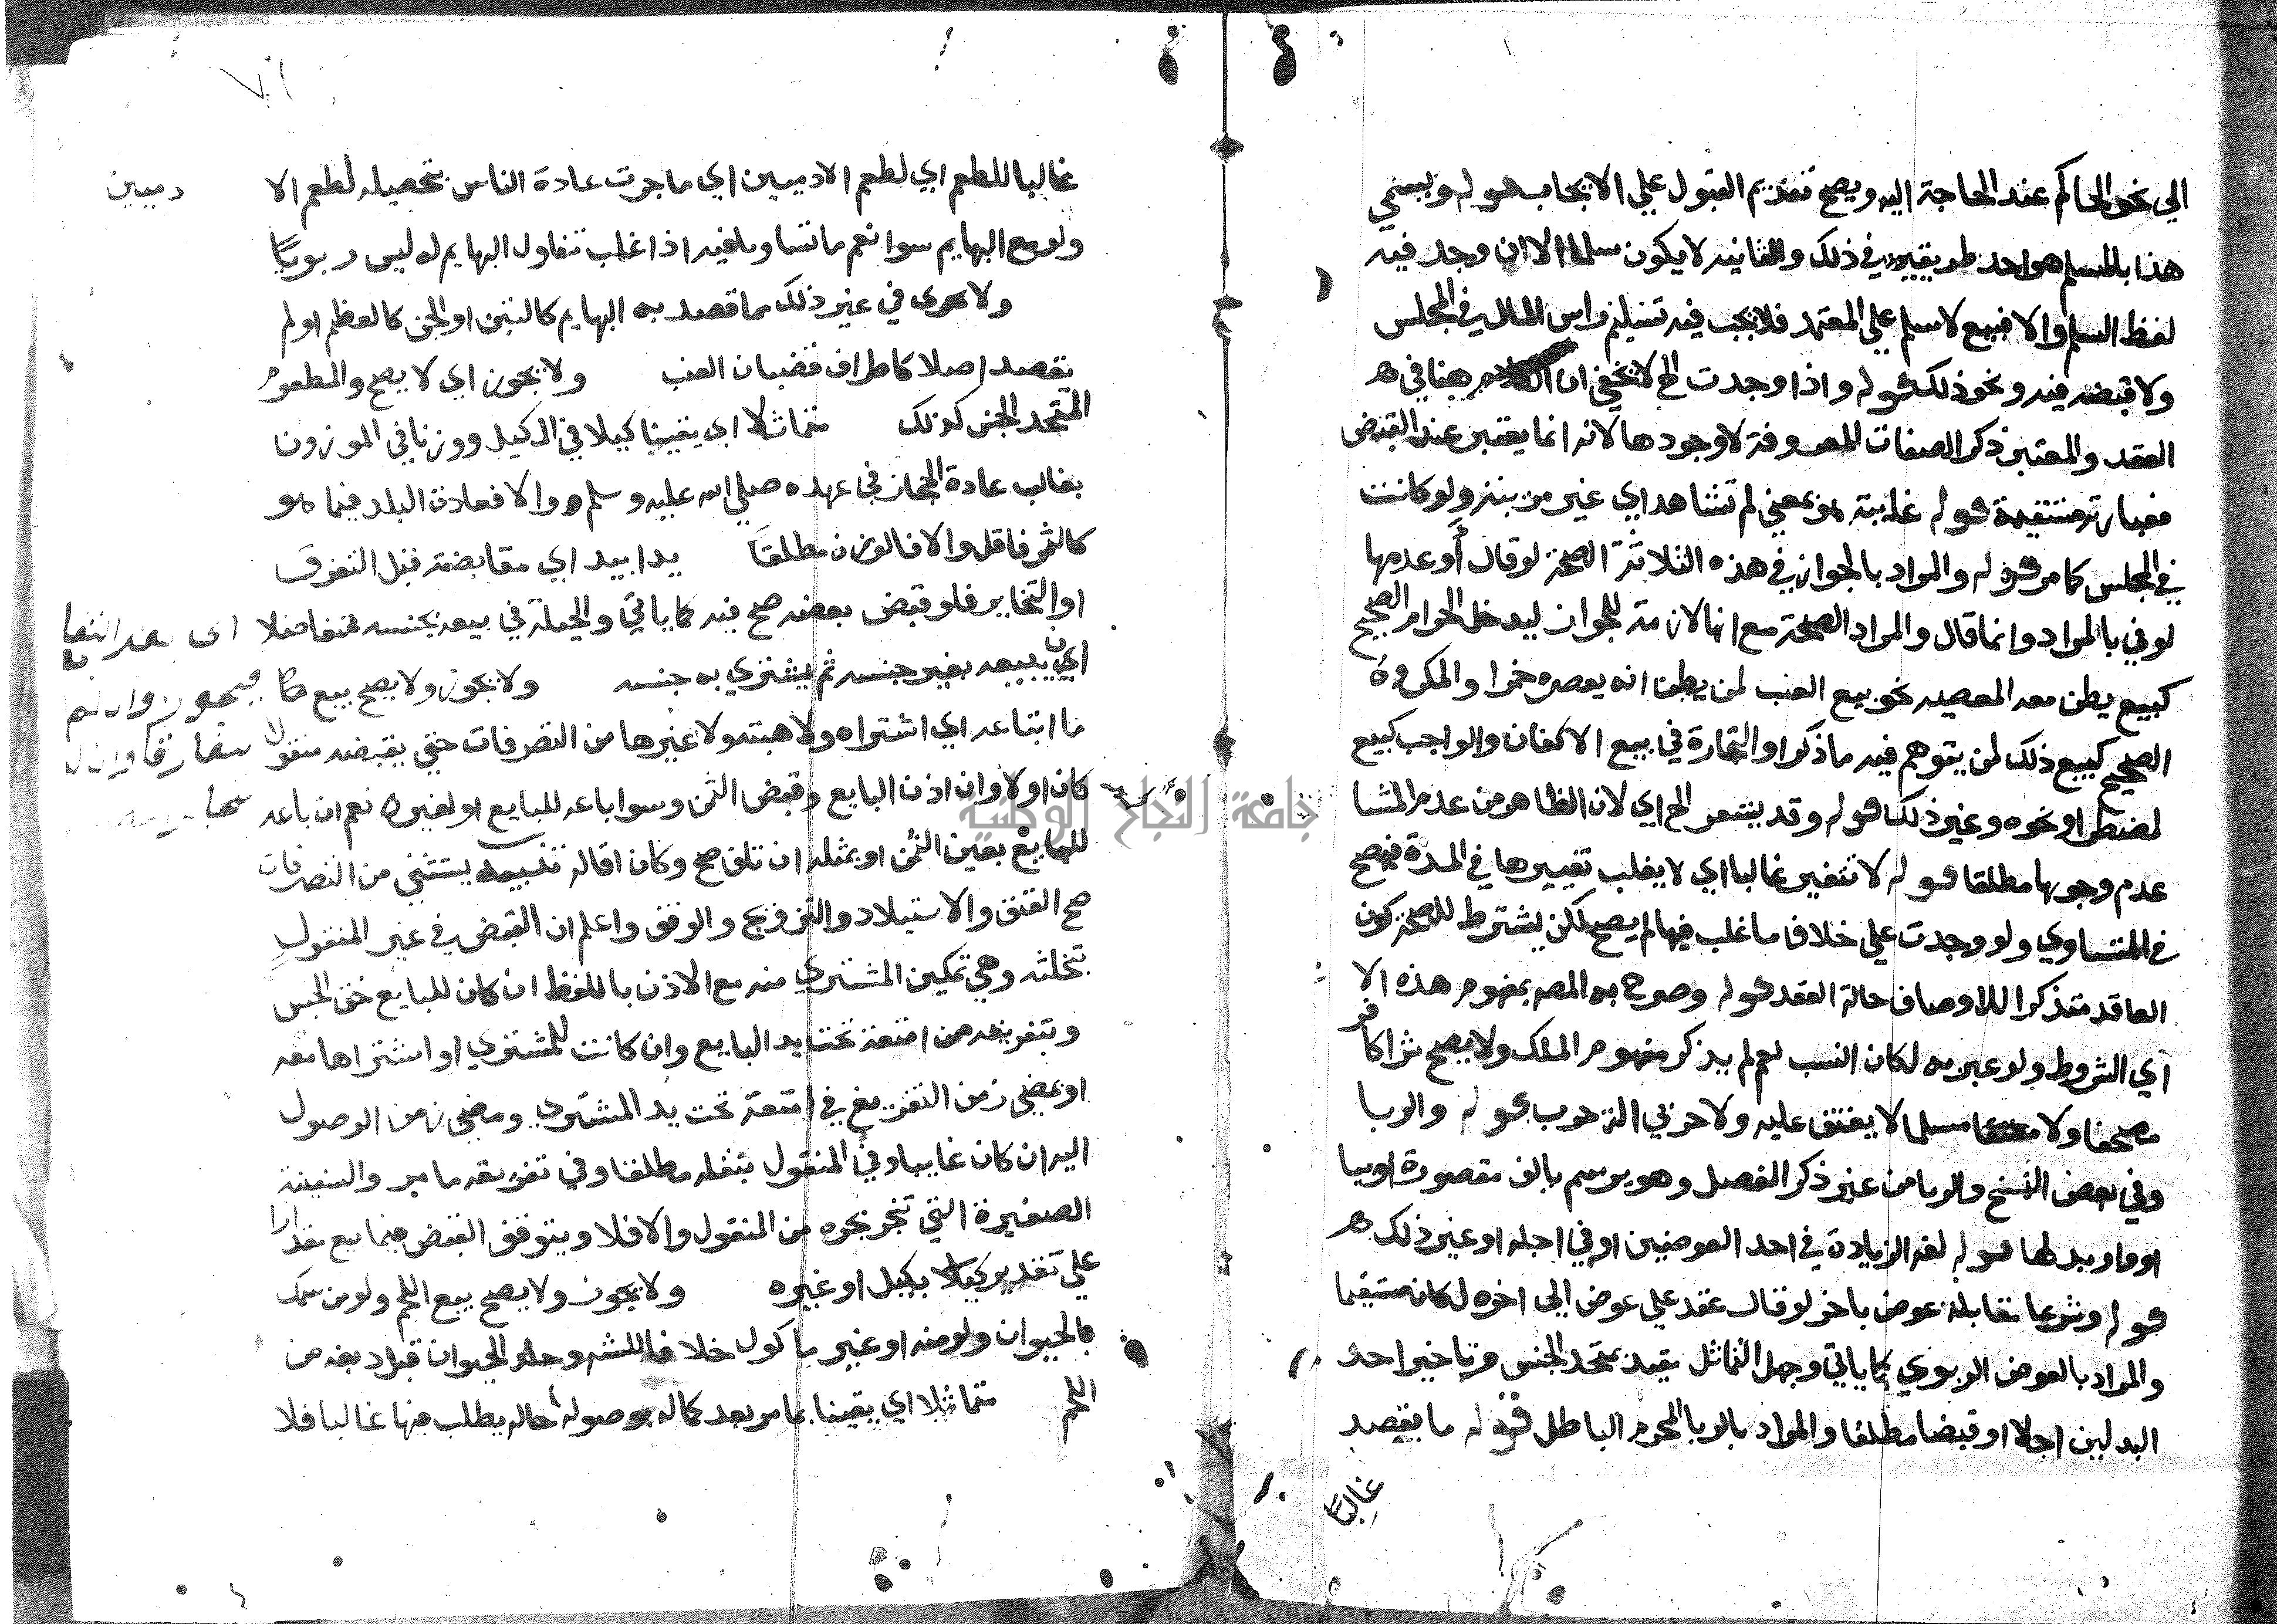 الي نحو الحاكم عند الحاجة اليه ويصح تقديم القبول علي الايجاب قوله ويسمي
هذا بالمسلم هو احد طريقين في ذلك والثانيه لا يكون سلما الا ان وجد فيه
لفظ السلم والا فبيع لا سلم علي المعتمد فلا يجب فيه تسليم راس المال في المجلس
ولا قبضه فيه ونحو ذلك قوله واذا وجدت الخ لا يخفي ان الكلام هنا في
العقد والمعتبر ذكر الصفات المعروفة لا وجودها لانه انما يعتبر عند القبض
فعبارته مستقيمة قوله غايبة هو بمعني لم تشاهد اي غير مرئية ولو كانت
في المجلس كما مر قوله والمراد بالجواز في هذه الثلاثة الصحة لو قال أو عدمها
لوفي بالمراد وانما قال والمراد الصحة مع انها لازمة للجواز ليدخل الحرام الصحيح
كبيع يظن معه المعصيه نحو بيع العنب لمن يظن انه يعصره خمرا والمكروه
الصحيح كبيع ذلك لمن يتوهم فيه ما ذكر او التجارة في بيع الاكفان والواجب كبيع
لمضطر او نحوه وغير ذلك قوله وقد يشعر الخ اي لان الظاهر من عدم المشا
عدم وجوبها مطلقا قوله لا تتغير غالبا اي لا يغلب تغييرها في المدة فيصح
في المتساوي ولو وجدت علي خلاف ما غلب فيها لم يصح لكن يشترط للصحة كون
العاقد متذكرا للاوصاف حالة العقد قوله وصرح به المص بمفهوم هذه الا
اي الشروط ولو عبر به لكان انسب نعم لم يذكر مفهوم الملك ولا يصح شرا كافر
مصحفا ولا مسلما لا يعتق عليه ولا حربي الة حرب قوله والربا
وفي بعض النسخ والربا من غير ذكر الفصل وهو يرسم بالف مقصورة او بيا
او واو بدلها قوله لغة الزيادة في احد العوضين او في اجله او غير ذلك
قوله وشرعا مقابلة عوض باخر لو قال عقد علي عوض الي اخره لكان مستقيما
والمراد بالعوض الربوي كما ياتي وجهل التماثل يقيد بمتحد الجنس وتاخير احد
البدلين اجلا او قبضا مطلقا والمراد بالربا المحرم الباطل قوله ما يقصد
غالبًا
غالبا للطعم اي لطعم الادميين اي ما جرت عادة الناس بتحصيله لطعم الا دميين
ولو مع البهايم سوا نعم ما تساويا فيه اذا غلب تناول البهايم له ليس ربويًا
ولا في غير ذلك مما قصد به البهايم كالتبن او الجن كالعظم او لم
يقصد اصلا كاطراف قضبان العنب ولا يجوز اي لا يصح والمطعوم
المتحد الجنس كذلك متماثلا اي يقينا كيلا في المكيل ووزنا في الموزون
بغالب عادة الحجاز في عهده صلي الله عليه وسلم والا فعادة البلد فيما هو
كالثمر فاقل والا فالوزن مطلقًا يدا بيد اي مقابضة قبل التفرق
او التخاير فلو قبض بعضه صح فيه كما ياتي والحيلة في بيعه بجنسه متفاضلا
اي ان يبيعه بغير جنسه ثم يشتري به جنسه ولا يجوز ولا يصح بيع
ما ابتاعه اي اشتراه ولا هبته ولا غيرها من التصرفات حتي يقبضه منقولا
كان اولا وان اذن البايع وقبض الثمن وسوا باعه للبايع او لغيره نعم ان باعه
للبايع بعين الثمن او بمثله ان تلف صح وكان اقاله تنبيه يستثني من التصرفات
صح العتق والاستيلاد والتزويج والوقف واعلم ان القبض في غير المنقول
بتخليته وهي تمكين المشتري منه مع الاذن باللفظ ان كان للبايع حق الحبس
وبتفريغه من امتعة تحت يد البايع وان كانت للمشتري او اشتراها معه
او بمضي زمن التفريغ في امتعة تحت يد المشتري ومضي زمن الوصول
اليه ان كان غايبا وفي المنقول بنقله مطلقا وفي تفريغه ما مر والسفينة
الصغيرة التي تنجر بجره من المنقول والا فلا ويتوقف القبض فيما بيع مقدارا
علي تقديره كيلا بكيل او غيره ولا يجوز ولا يصح بيع اللحم ولو من سمك
بالحيوان ولو منه او غير ماكول خلافا للشه وجلد الحيوان قبل دبغه من
اللحم متماثلا اي يقينا بما مر بعد كماله بوصوله حاله يطلب منها غالبا فلا
جامعة النجاح الوطنية